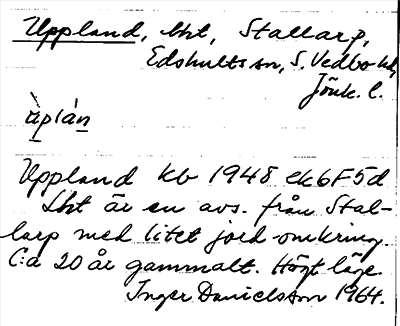 Uppland, lht, Stallarp,
Edshults sn, S. Vedbo hd,
Jönk. l.
àplán
Uppland kb 1948 ek6F5d
Lht är en avs. från Stal-
larp med litet jord omkring.
C:a 20 år gammalt. Högt läge.
Inger Danielsson 1964.